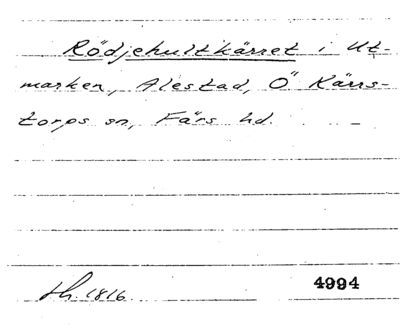 Rödjehultkärret i Ut-
marken, Alestad, Ö Kärrs-
torps sn, Färs hd.
Lh. 1816. 4994